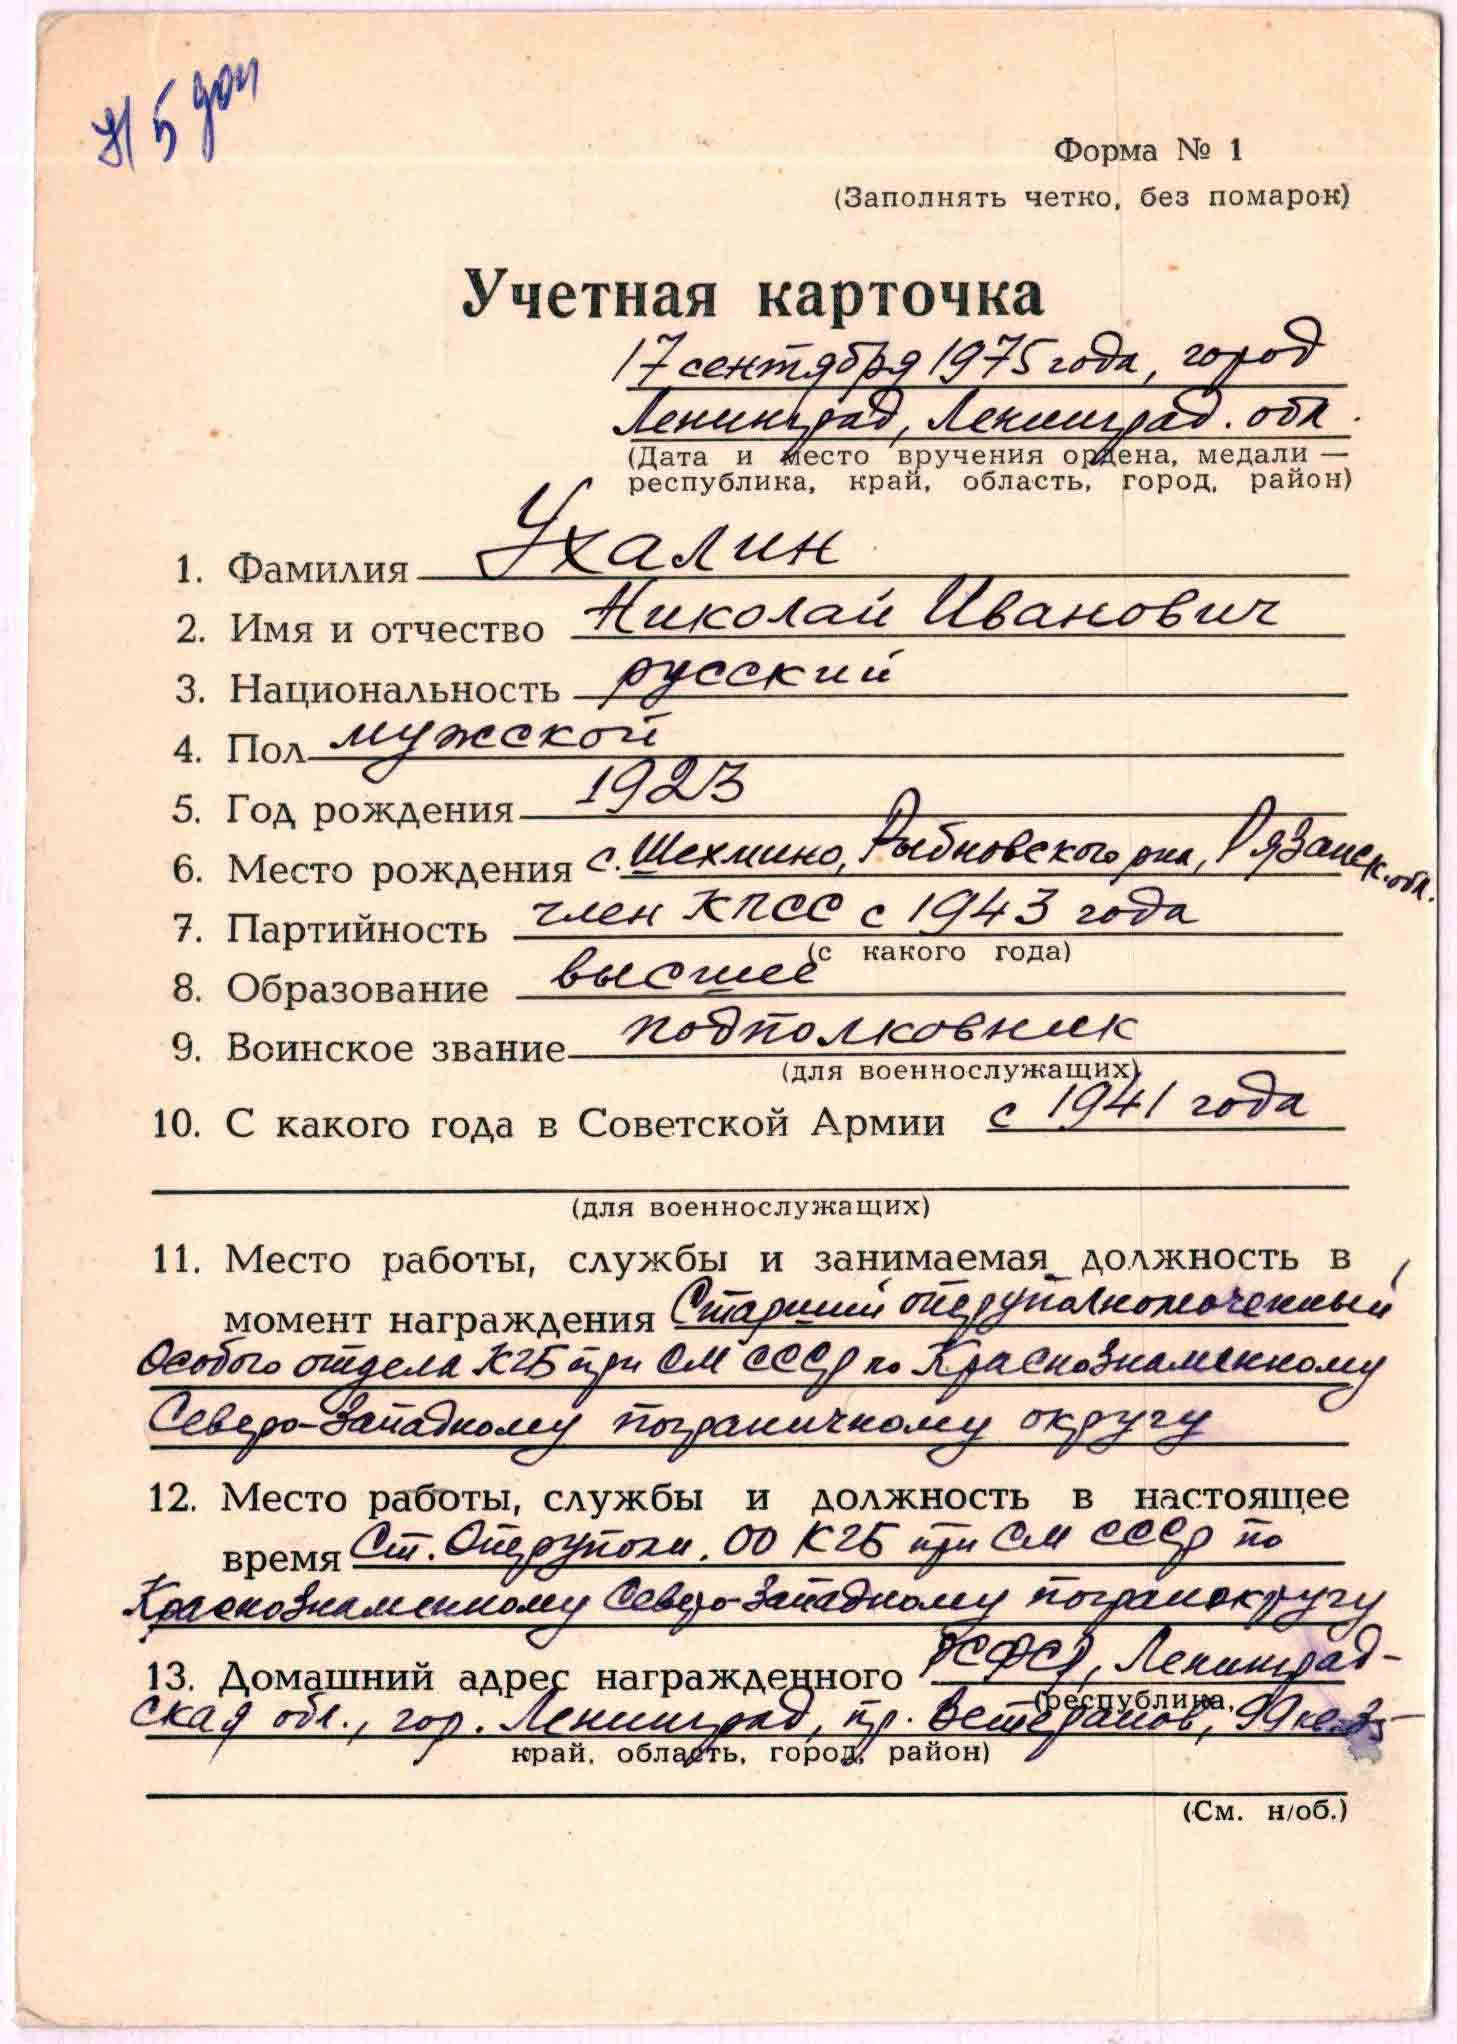 5 доп
Форма № 1
(Заполнять четко, без помарок)
Учетная карточка
17 сентября 1975 года, город
Ленинград, Ленинград. обл.
(Дата и место вручения ордена, медали —
республика, край, область, город, район)
1. Фамилия Ухалин
2. Имя и отчество Николай Иванович
3. Национальность русский
4. Пол мужской
5. Год рождения 1923
6. Место рождения с. Шехмино, Рыбновского р-на, Рязанск. обл.
7. Партийность член КПСС с 1943 года
(с какого года)
8. Образование высшее
9. Воинское звание подполковник
(для военнослужащих)
10. С какого года в Советской Армии с 1941 года
(для военнослужащих)
11. Место работы, службы и занимаемая должность в
момент награждения Старший оперуполномоченный
Особого отдела КГБ при СМ СССР по Краснознаменному
Северо-Западному пограничному округу
12. Место работы, службы и должность в настоящее
время Ст. Оперуполн. ОО КГБ при СМ СССР по
Краснознаменному Северо-Западному погранокругу
13. Домашний адрес награжденного РСФСР, Ленинград-
(республика,
ская обл., гор. Ленинград, пр. Ветеранов, 99
край, область, город, район)
(См. н/об.)